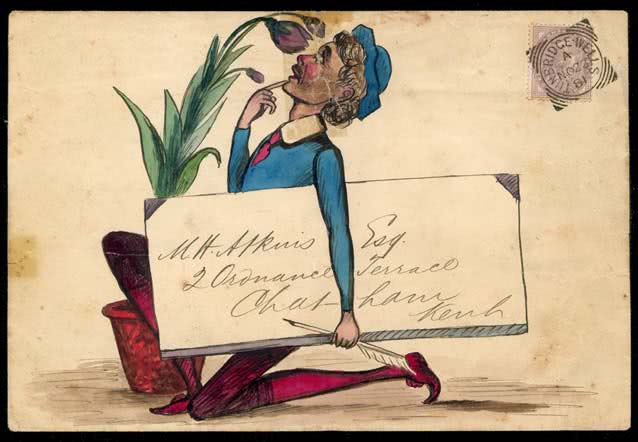 M.H. Atkins Esq.
2 Ordnance Terrace
Chat-ham
Kent
TUNBRIDGE-WELLS
A
81